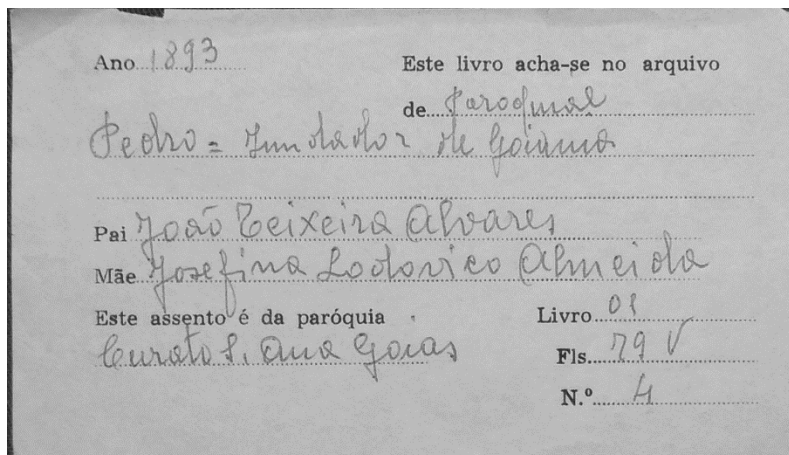 Ano 1893 Este livro acha-se no arquivo
de Paroquial
Pedro = Fundador de Goiania
Pai João Teixeira Alvares
Mãe Josefina Lodovico Almeida
Este assento é da paróquia Livro 01
Curato S. Ana Goias Fls. 79 V
N.º 4